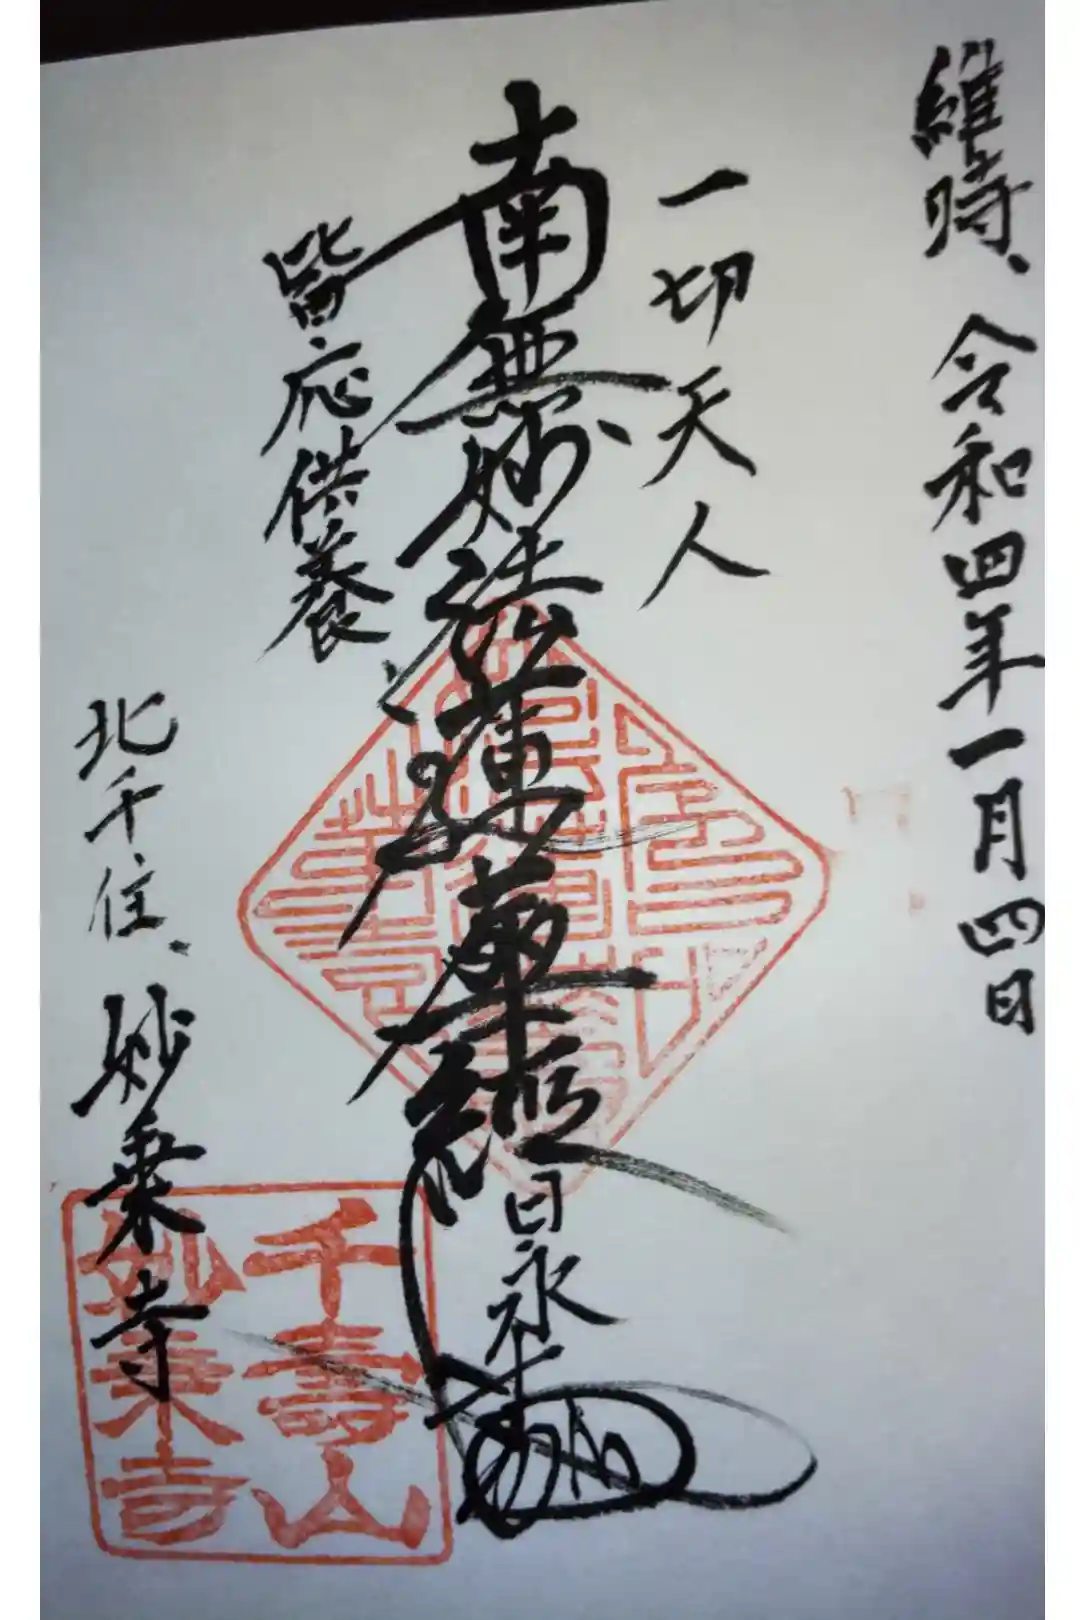 維時、令和四年一月四日
一切天人
南無妙法蓮華経
日永
皆応供養
北千住、妙乗寺
千壽山
妙乗寺